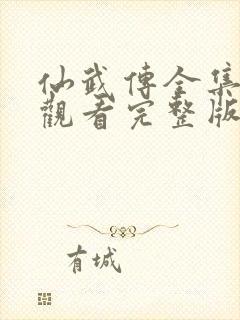 仙武傳全集
觀看完整版
有城